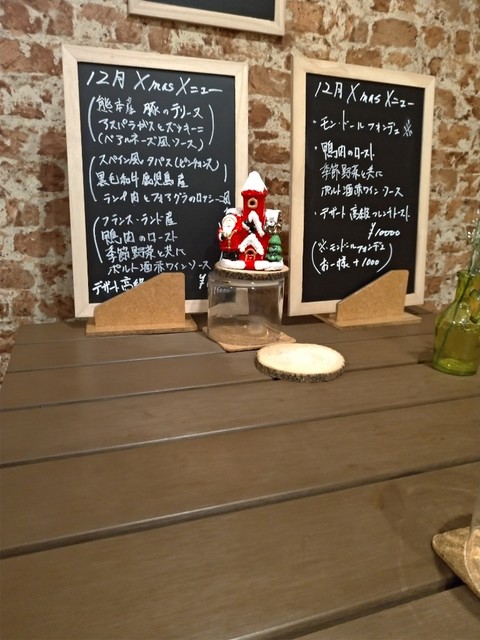 12月 Xmasメニュー
熊本産 豚のテリーヌ
アスパラガスとズッキーニ
(ベアルネーズ風ソース)
スペイン風タパス(ピンチョス)
黒毛和牛鹿児島産
ランプ肉とフォアグラのロッシーニ風
フランス・ランド産
鴨肉のロースト
季節野菜と共に
ボルドー酒赤ワインソース
デザート 高級
12月 Xmasメニュー
・モン・ドールフォンデュ ※
・鴨肉のロースト
季節野菜と共に
ボルドー酒赤ワインソース
・デザート 高級フレンチトースト
¥10000
(※モンドールフォンデュ
お一人様 +1000)